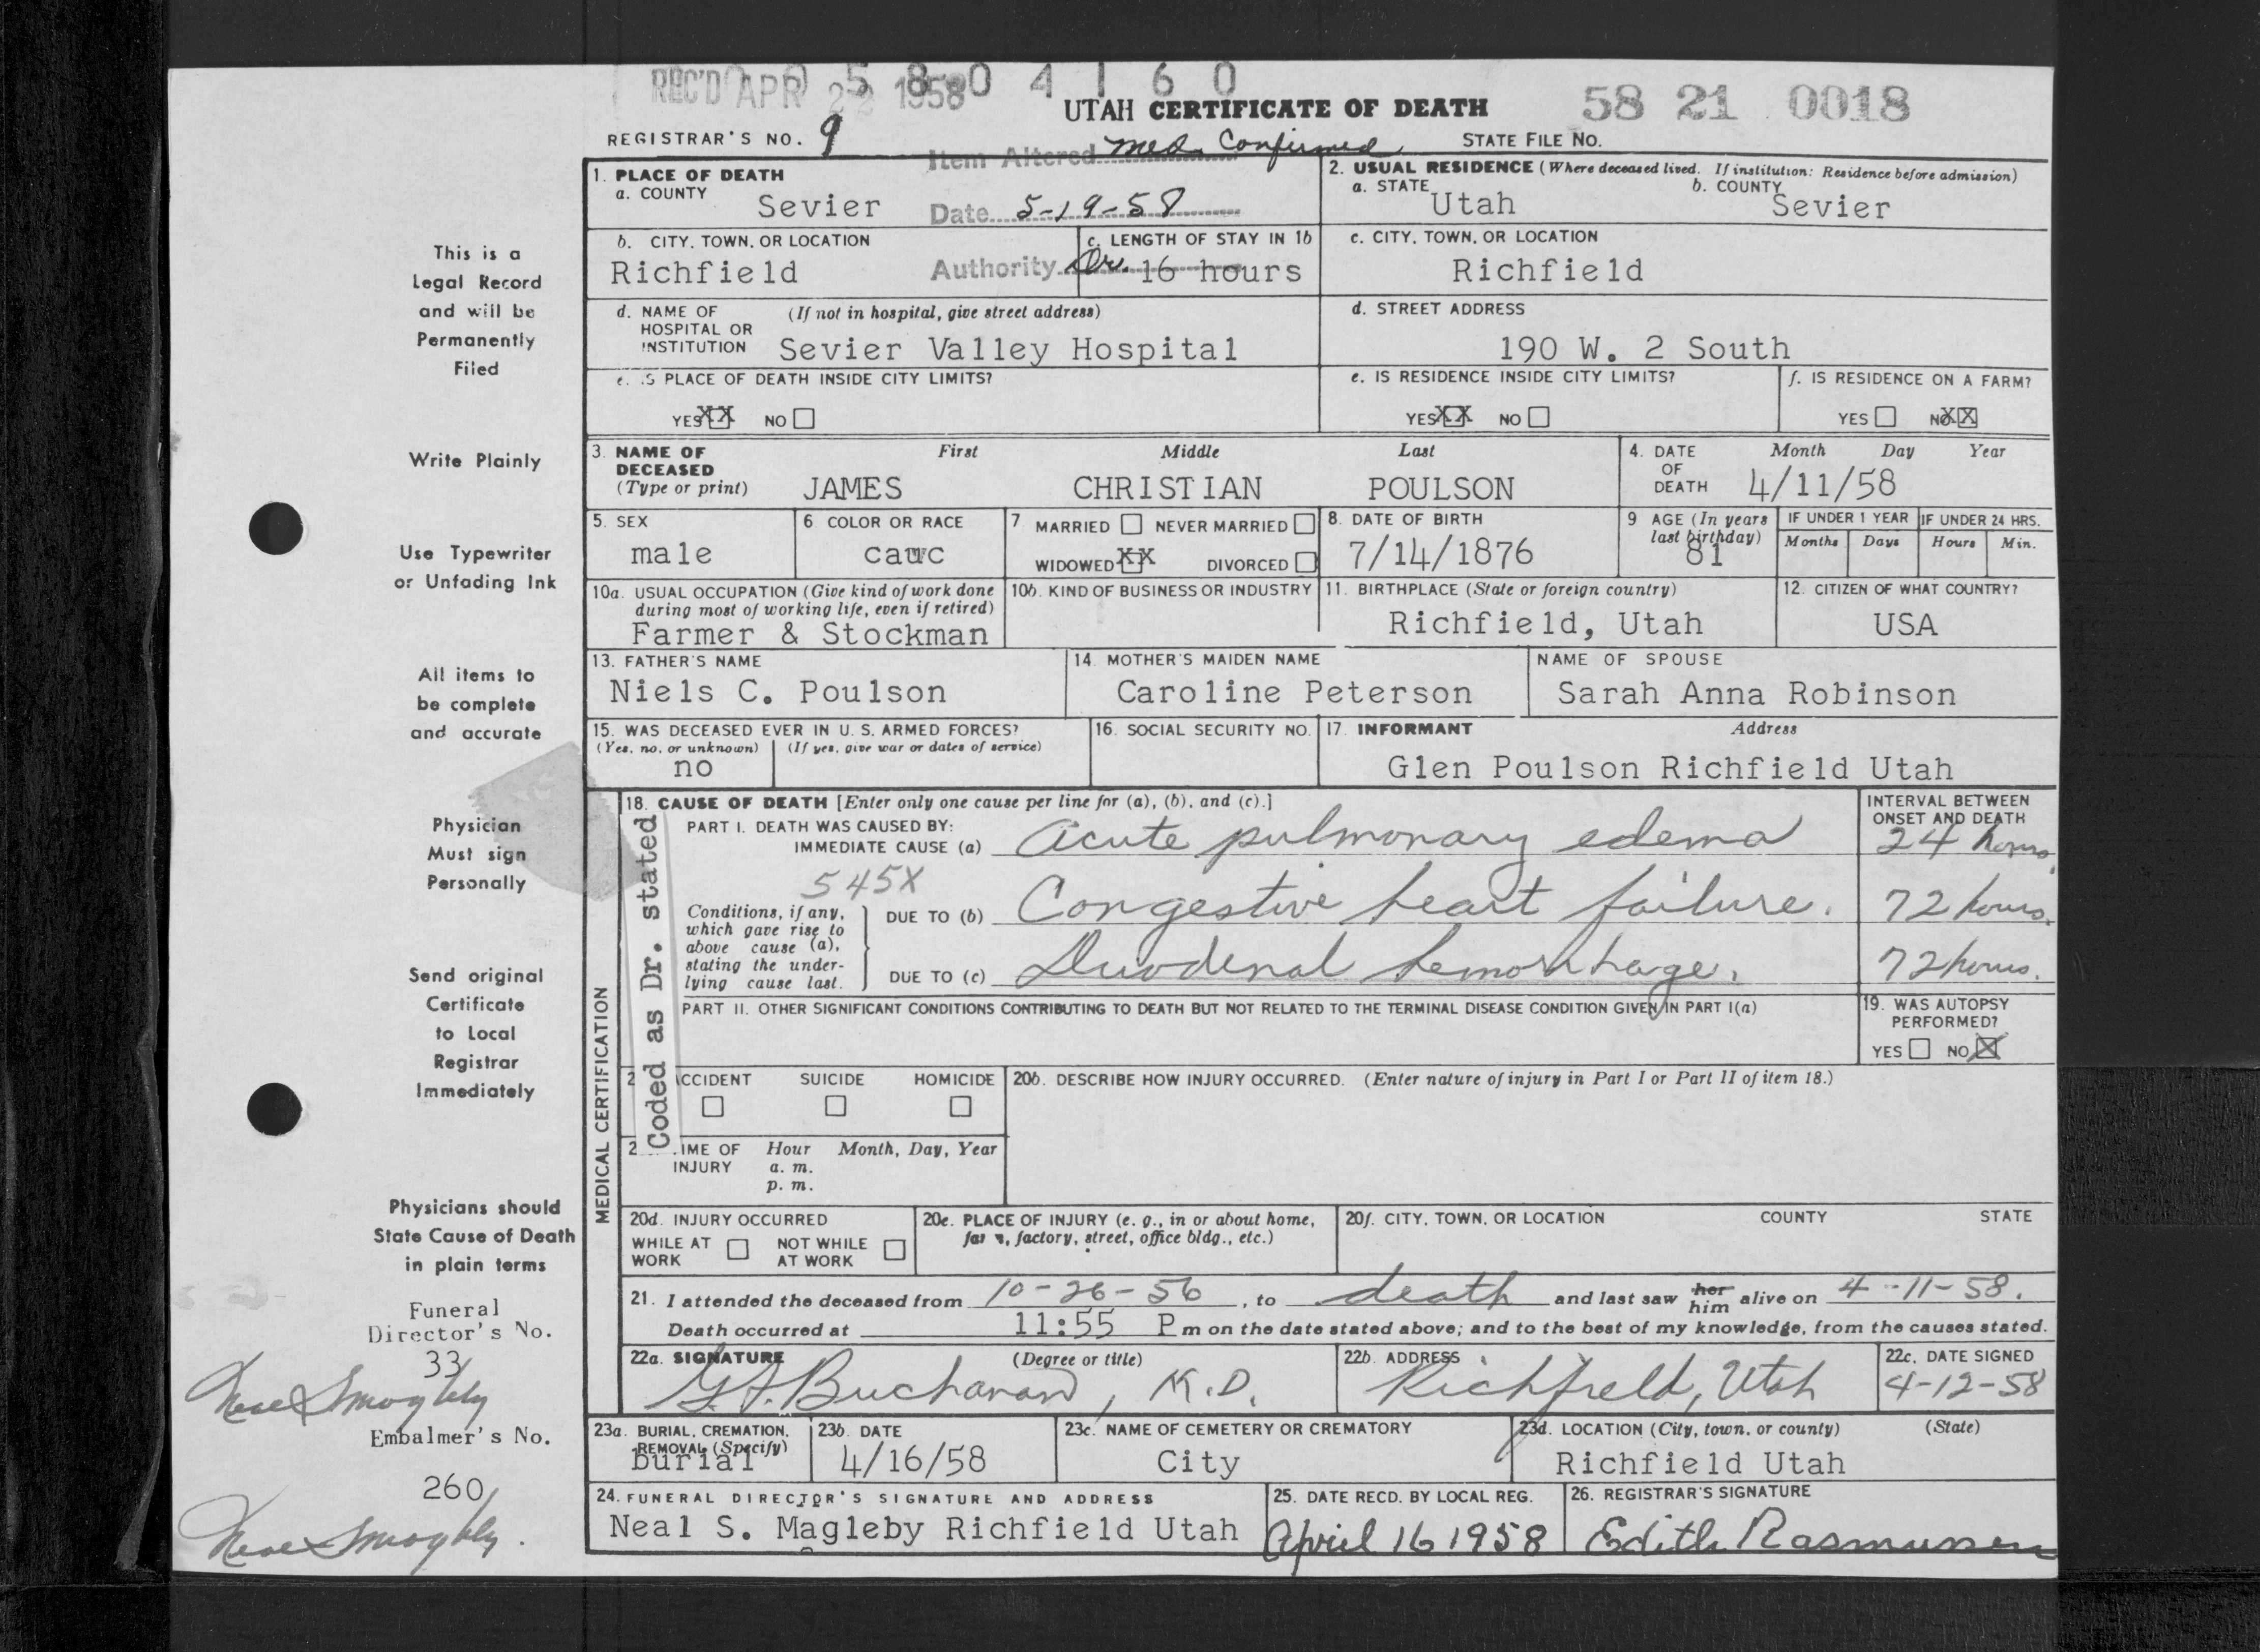 REC'D APR 22 1958
0 0 5 8 0 4 1 6 0
UTAH CERTIFICATE OF DEATH
58 21 0018
REGISTRAR'S NO. 9
Item Altered Med. Confirmed
STATE FILE NO.
1. PLACE OF DEATH
a. COUNTY
Sevier
Date 5-19-58
2. USUAL RESIDENCE (Where deceased lived. If institution: Residence before admission)
a. STATE
Utah
b. COUNTY
Sevier
b. CITY, TOWN, OR LOCATION
Richfield
Authority Dr.
c. LENGTH OF STAY IN 1b
16 hours
c. CITY, TOWN, OR LOCATION
Richfield
d. NAME OF HOSPITAL OR INSTITUTION
(If not in hospital, give street address)
Sevier Valley Hospital
d. STREET ADDRESS
190 W. 2 South
e. IS PLACE OF DEATH INSIDE CITY LIMITS?
YES XX NO
e. IS RESIDENCE INSIDE CITY LIMITS?
YES XX NO
f. IS RESIDENCE ON A FARM?
YES NO XX
3. NAME OF DECEASED (Type or print)
First Middle Last
JAMES CHRISTIAN POULSON
4. DATE OF DEATH
Month Day Year
4/11/58
5. SEX
male
6 COLOR OR RACE
cauc
7 MARRIED NEVER MARRIED
WIDOWED XX DIVORCED
8. DATE OF BIRTH
7/14/1876
9 AGE (In years last birthday)
81
IF UNDER 1 YEAR
Months Days
IF UNDER 24 HRS.
Hours Min.
10a. USUAL OCCUPATION (Give kind of work done during most of working life, even if retired)
Farmer & Stockman
10b. KIND OF BUSINESS OR INDUSTRY
11. BIRTHPLACE (State or foreign country)
Richfield, Utah
12. CITIZEN OF WHAT COUNTRY?
USA
13. FATHER'S NAME
Niels C. Poulson
14. MOTHER'S MAIDEN NAME
Caroline Peterson
NAME OF SPOUSE
Sarah Anna Robinson
15. WAS DECEASED EVER IN U. S. ARMED FORCES?
(Yes, no, or unknown) (If yes, give war or dates of service)
no
16. SOCIAL SECURITY NO.
17. INFORMANT Address
Glen Poulson Richfield Utah
MEDICAL CERTIFICATION
Coded as Dr. stated
18. CAUSE OF DEATH [Enter only one cause per line for (a), (b), and (c).]
INTERVAL BETWEEN ONSET AND DEATH
PART I. DEATH WAS CAUSED BY:
IMMEDIATE CAUSE (a) Acute pulmonary edema 24 hours
545X
Conditions, if any, which gave rise to above cause (a), stating the underlying cause last.
DUE TO (b) Congestive heart failure. 72 hours.
DUE TO (c) Duodenal hemorrhage. 72 hours.
PART II. OTHER SIGNIFICANT CONDITIONS CONTRIBUTING TO DEATH BUT NOT RELATED TO THE TERMINAL DISEASE CONDITION GIVEN IN PART I(a)
19. WAS AUTOPSY PERFORMED?
YES NO X
2 CCIDENT SUICIDE HOMICIDE
20b. DESCRIBE HOW INJURY OCCURRED. (Enter nature of injury in Part I or Part II of item 18.)
2 IME OF INJURY
Hour Month, Day, Year
a. m.
p. m.
20d. INJURY OCCURRED
WHILE AT WORK NOT WHILE AT WORK
20e. PLACE OF INJURY (e. g., in or about home, farm, factory, street, office bldg., etc.)
20f. CITY, TOWN, OR LOCATION COUNTY STATE
21. I attended the deceased from 10-26-56, to death and last saw her him alive on 4-11-58.
Death occurred at 11:55 P m on the date stated above; and to the best of my knowledge, from the causes stated.
22a. SIGNATURE (Degree or title)
Buchanan, M.D.
22b. ADDRESS
Richfield, Utah
22c. DATE SIGNED
4-12-58
23a. BURIAL, CREMATION, REMOVAL (Specify)
burial
23b. DATE
4/16/58
23c. NAME OF CEMETERY OR CREMATORY
City
23d. LOCATION (City, town, or county) (State)
Richfield Utah
24. FUNERAL DIRECTOR'S SIGNATURE AND ADDRESS
Neal S. Magleby Richfield Utah
25. DATE RECD. BY LOCAL REG.
April 16 1958
26. REGISTRAR'S SIGNATURE
Edith Rasmussen
This is a
Legal Record
and will be
Permanently
Filed
Write Plainly
Use Typewriter
or Unfading Ink
All items to
be complete
and accurate
Physician
Must sign
Personally
Send original
Certificate
to Local
Registrar
Immediately
Physicians should
State Cause of Death
in plain terms
Funeral
Director's No.
33
Neal S Magleby
Embalmer's No.
260
Neal S Magleby.